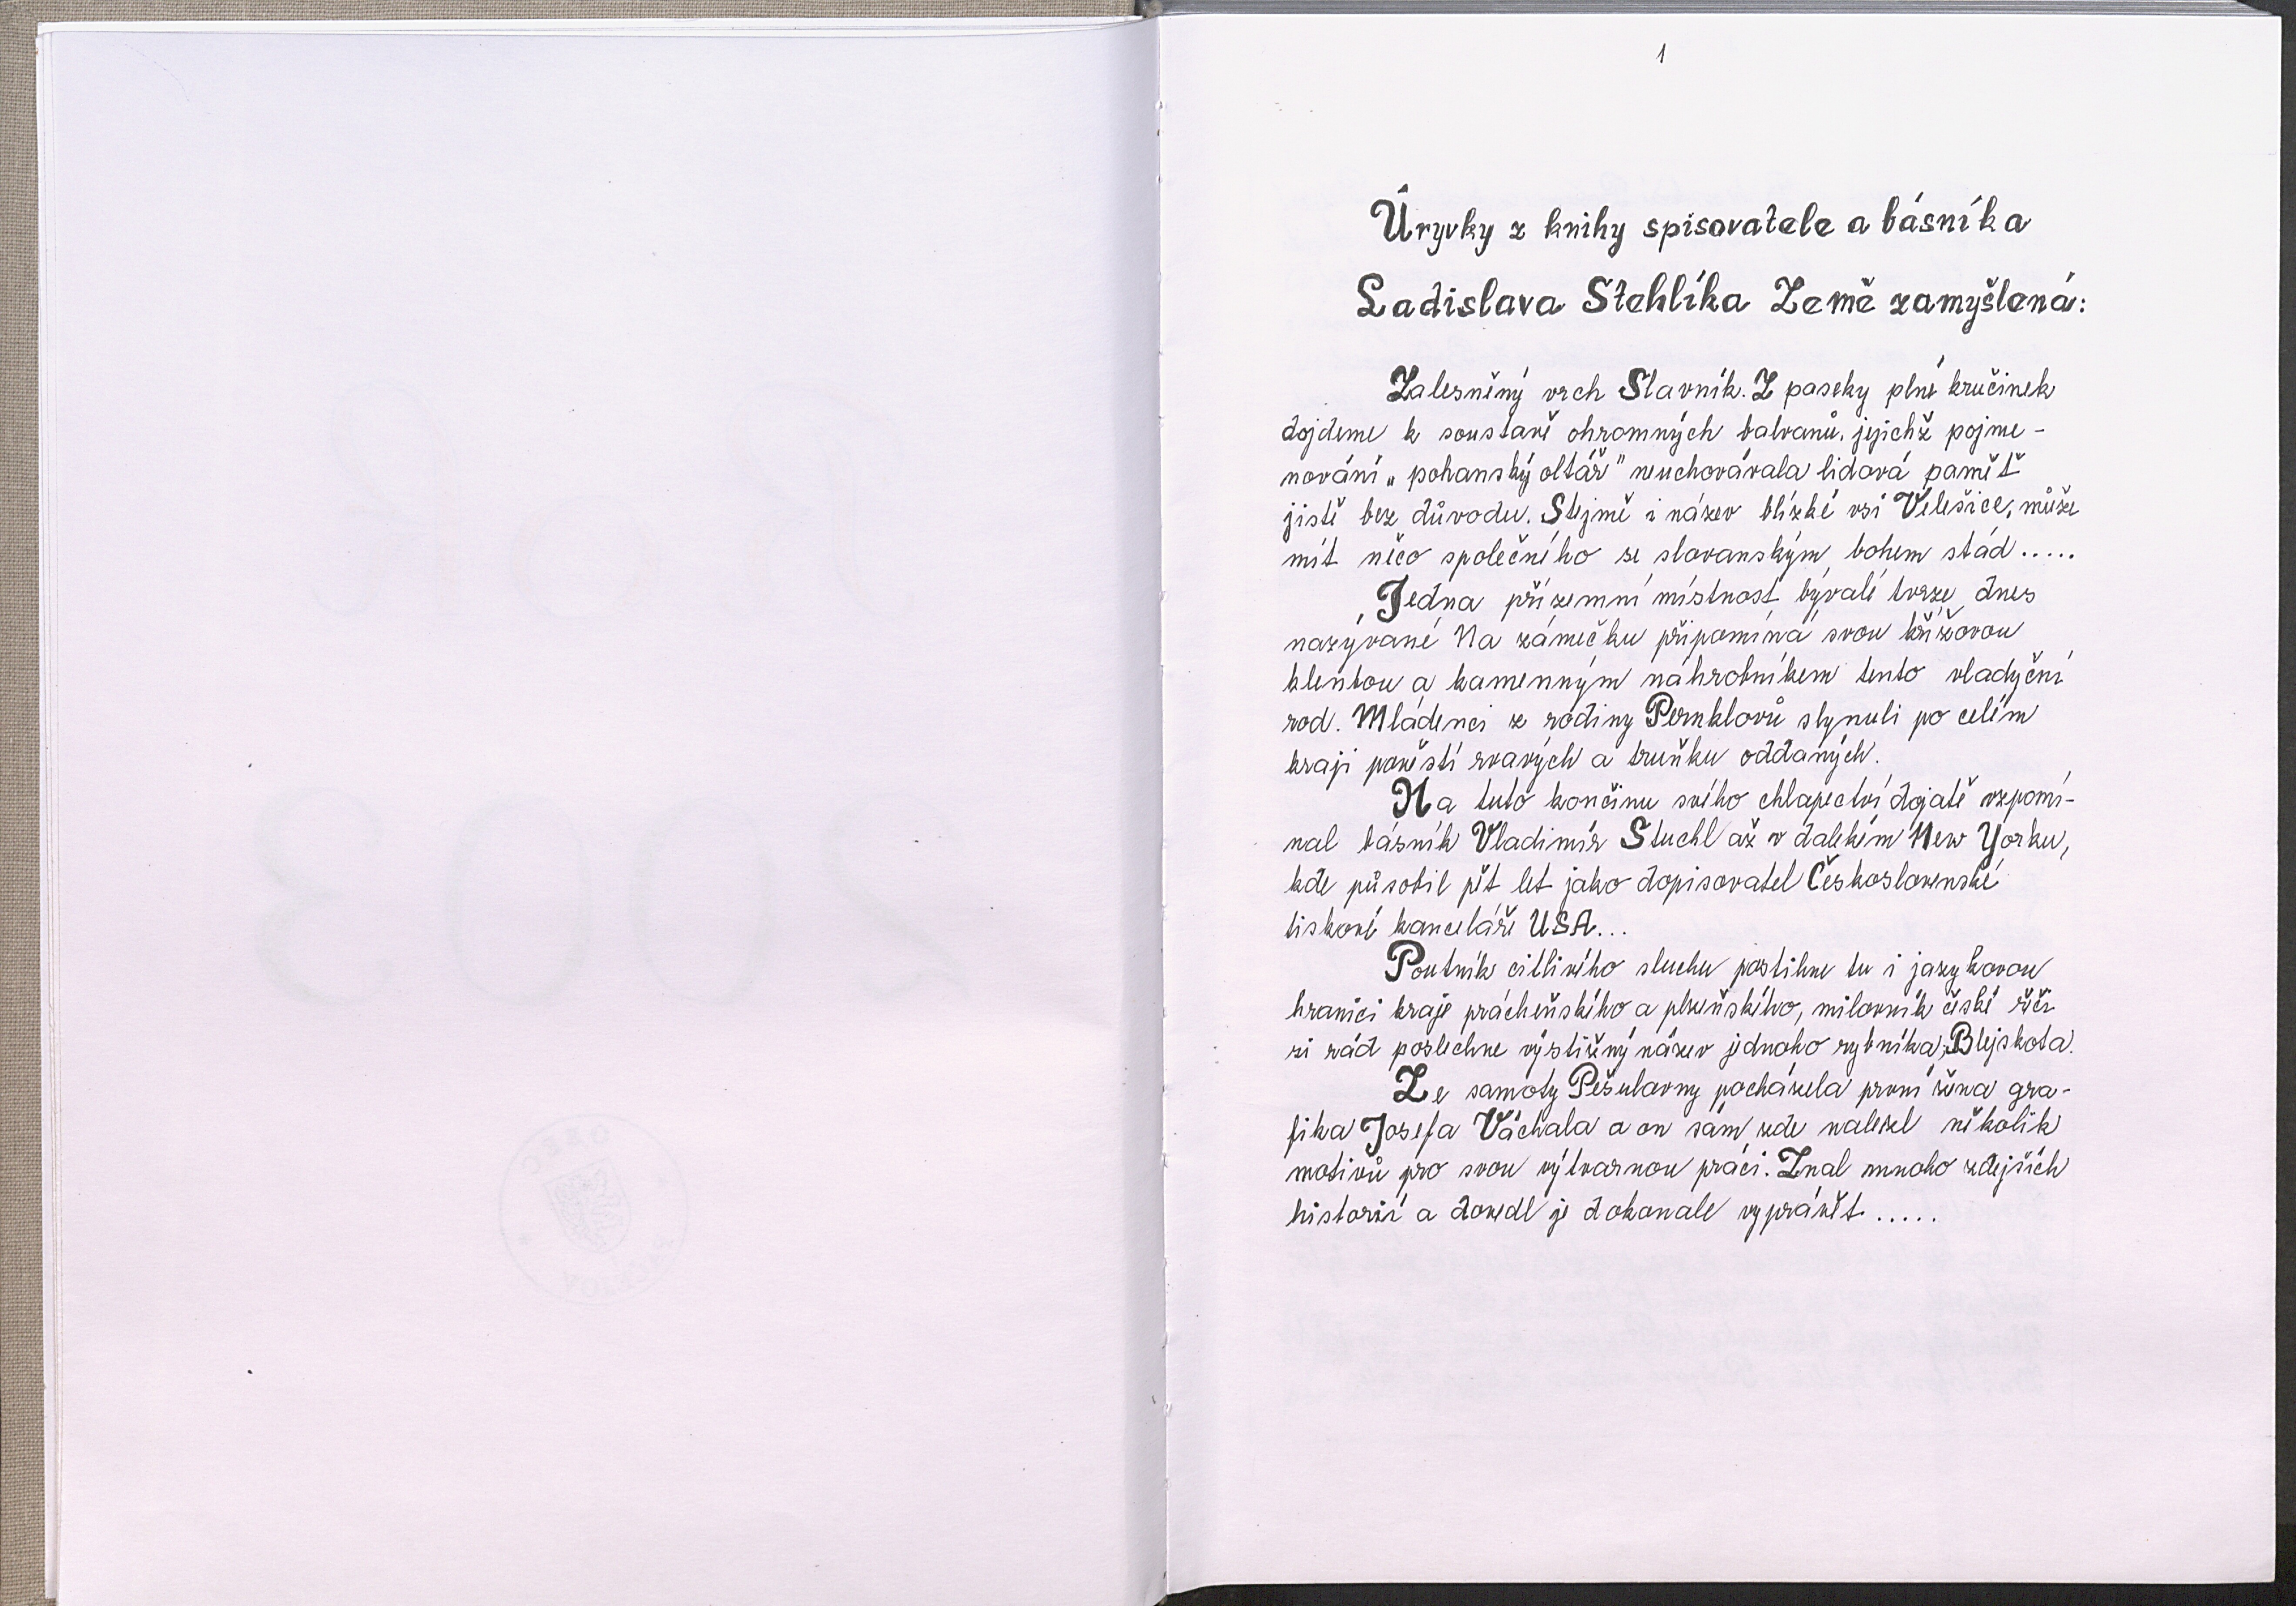 1
Úryvky z knihy spisovatele a básníka
Ladislava Stehlíka Země zamyšlená:
Zalesněný vrch Slavník. Z paseky plné kručinek
dojdeme k soustavě ohromných balvanů, jejichž pojme-
nování „pohanský oltář" neuchovávala lidová paměť
jistě bez důvodu. Stejně i název blízké vsi Velešice, může
mít něco společného se slovanským bohem stád.....
Jedna přízemní místnost bývalé tvrze, dnes
nazývané Na zámečku připomíná svou křížovou
klenbou a kamenným náhrobníkem tento vladyční
rod. Mládenci z rodiny Pernklovů slynuli po celém
kraji pověstí rvavých a truňku oddaných.
Na tuto končinu svého chlapectví dojatě vzpomí-
nal básník Vladimír Stuchl až v dalekém New Yorku,
kde působil pět let jako dopisovatel Československé
tiskové kanceláře USA...
Poutník citlivého sluchu postihne tu i jazykovou
hranici kraje prácheňského a plzeňského, milovník české řeči
si rád poslechne výstižný název jednoho rybníka: Blejskota.
Ze samoty Pešulovny pocházela první žena gra-
fika Josefa Váchala a on sám zde nalezl několik
motivů pro svou výtvarnou práci. Znal mnoho zdejších
historií a dovedl je dokonale vyprávět.....